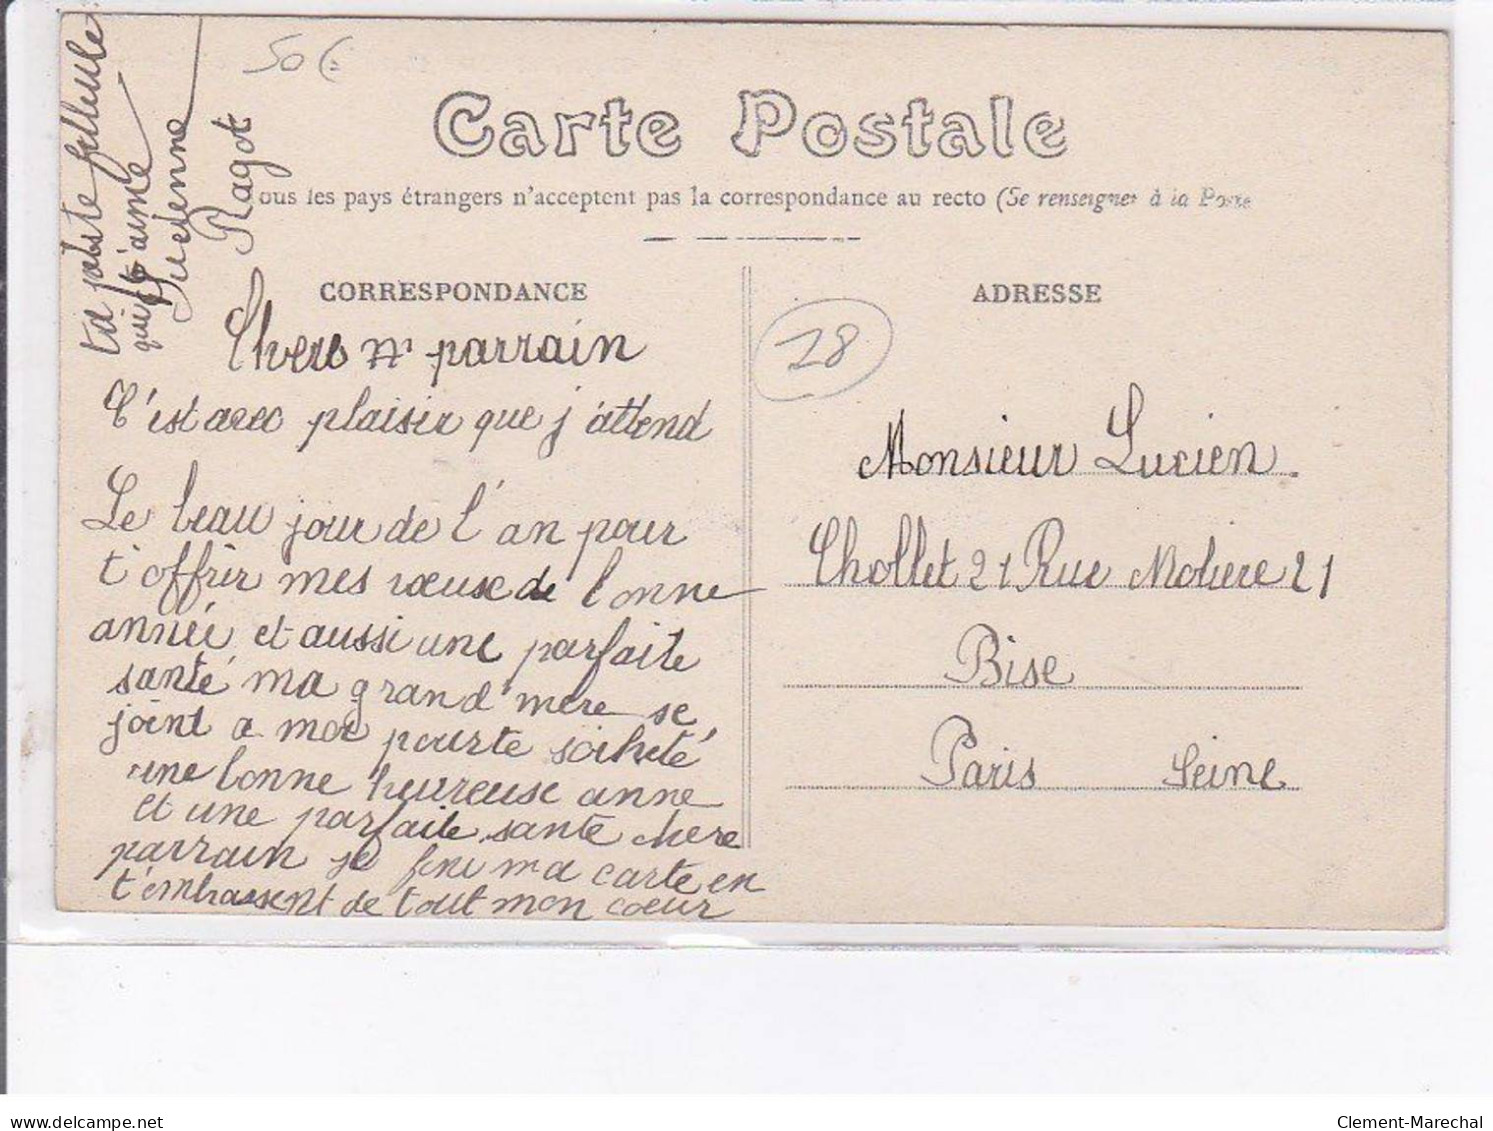 50€
Carte Postale
ous les pays étrangers n'acceptent pas la correspondance au recto (Se renseigner à la Poste
CORRESPONDANCE
parrain
C'est avec plaisir que j'attend
Le beau jour de l'an pour
t'offrir mes vœuse de bonne
année et aussi une parfaite
santé ma grand'mère se
joint a moi pour te soiheté
une bonne heureuse anne
et une parfaite sante chere
parrain je fini ma carte en
t'embrassent de tout mon coeur
ta filleule
qui t'aime
Lucienne
Ragot
ADRESSE
28
Monsieur Lucien
Chollet 21 Rue Moliere 21
Bise
Paris Seine
delcampe.net
Clement-Marechal